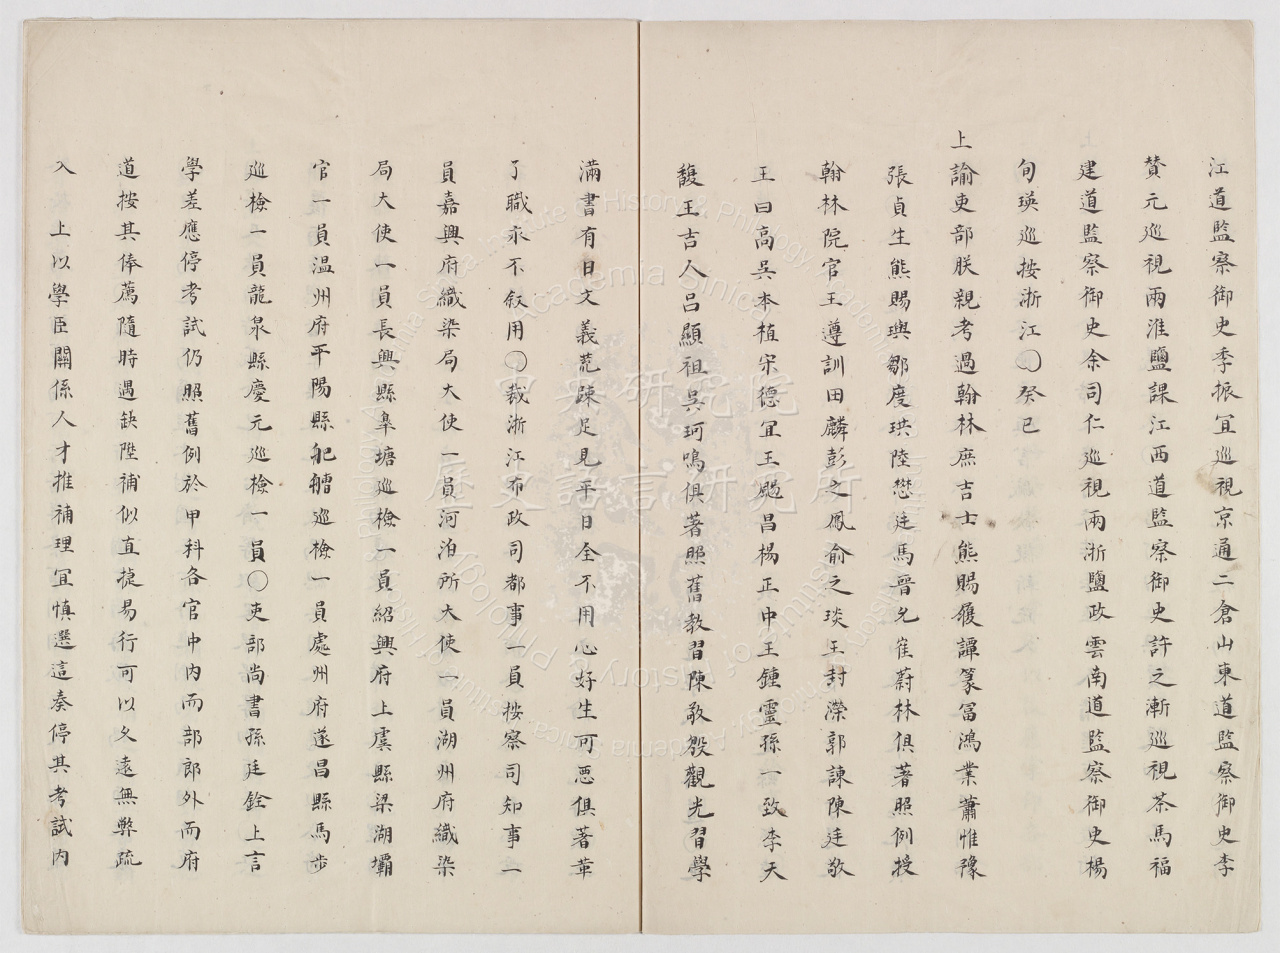 江道監察御史季振宜巡視京通二倉山東道監察御史李
贊元巡視兩淮鹽課江西道監察御史許之漸巡視茶馬福
建道監察御史余司仁巡視兩浙鹽政雲南道監察御史楊
旬瑛巡按浙江○癸巳
上諭吏部朕親考過翰林庶吉士熊賜履譚篆冨鴻業蕭惟豫
張貞生熊賜璵鄒度珙陸懋廷馬晉允崔蔚林俱著照例授
翰林院官王遵訓田麟彭之鳳俞之琰王封濚郭諫陳廷敬
王曰高吳本植宋德宜王颺昌楊正中王鍾靈孫一致李天
馥王吉人呂顯祖吳珂鳴俱著照舊教習陳敬殷觀光習學
滿書有日文義荒疎足見平日全不用心好生可惡俱著革
了職永不叙用○裁浙江布政司都事一員按察司知事一
員嘉興府織染局大使一員河泊所大使一員湖州府織染
局大使一員長興縣皋塘巡檢一員紹興府上虞縣梁湖壩
官一員温州府平陽縣舥艚巡檢一員處州府遂昌縣馬步
巡檢一員龍泉縣慶元巡檢一員○吏部尚書孫廷銓上言
學差應停考試仍照舊例於甲科各官中內而部郎外而府
道按其俸薦隨時遇缺陞補似直捷易行可以久遠無弊疏
入 上以學臣關係人才推補理宜慎選這奏停其考試內